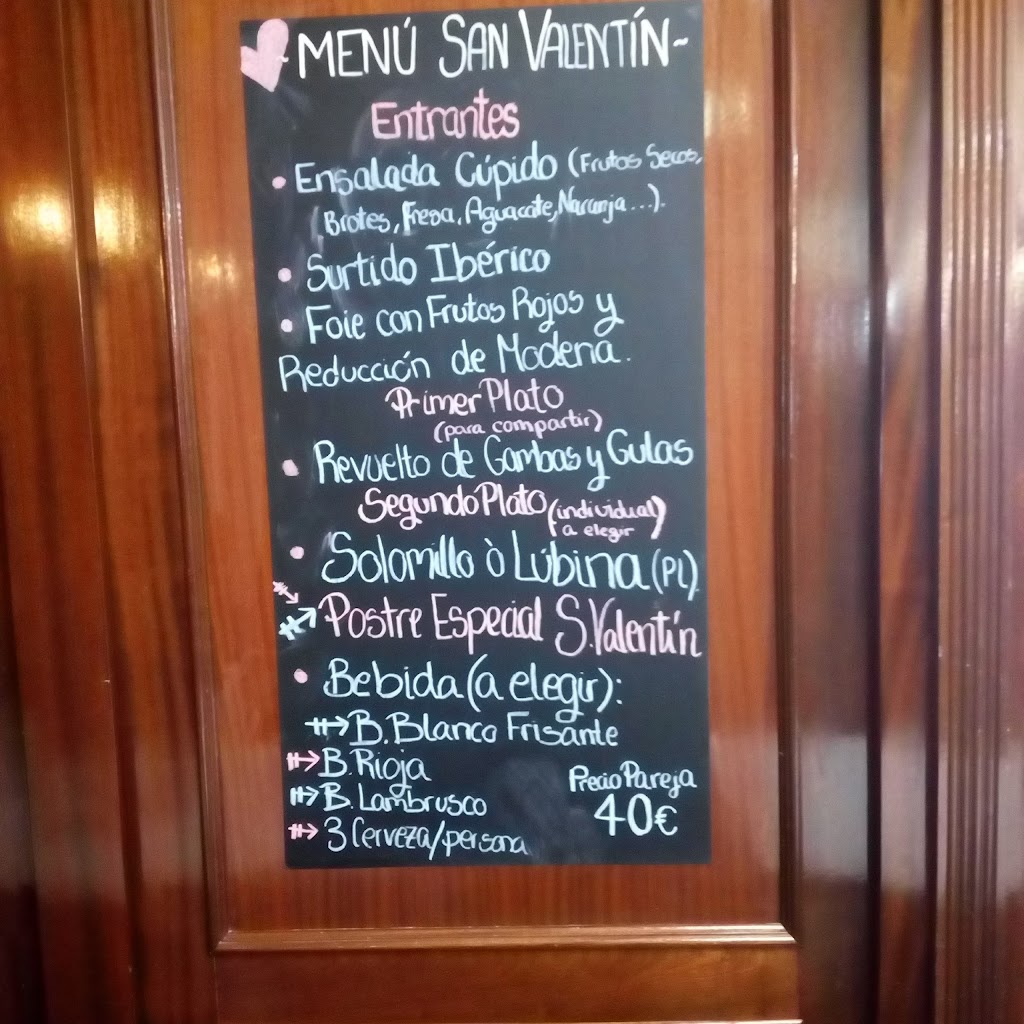 MENÚ SAN VALENTÍN~
Entrantes
• Ensalada Cúpido (Frutos Secos,
(Brotes, Fresa, Aguacate, Naranja...).
• Surtido Ibérico
• Foie con Frutos Rojos y
Reducción de Modena.
Primer Plato
(para compartir)
• Revuelto de Gambas y Gulas
Segundo Plato (individual)
a elegir
• Solomillo ò Lúbina (PL)
Postre Especial S.Valentín
• Bebida (a elegir):
B. Blanco Frisante
B. Rioja
B. Lambrusco
3 Cerveza/persona
Precio Pareja
40€